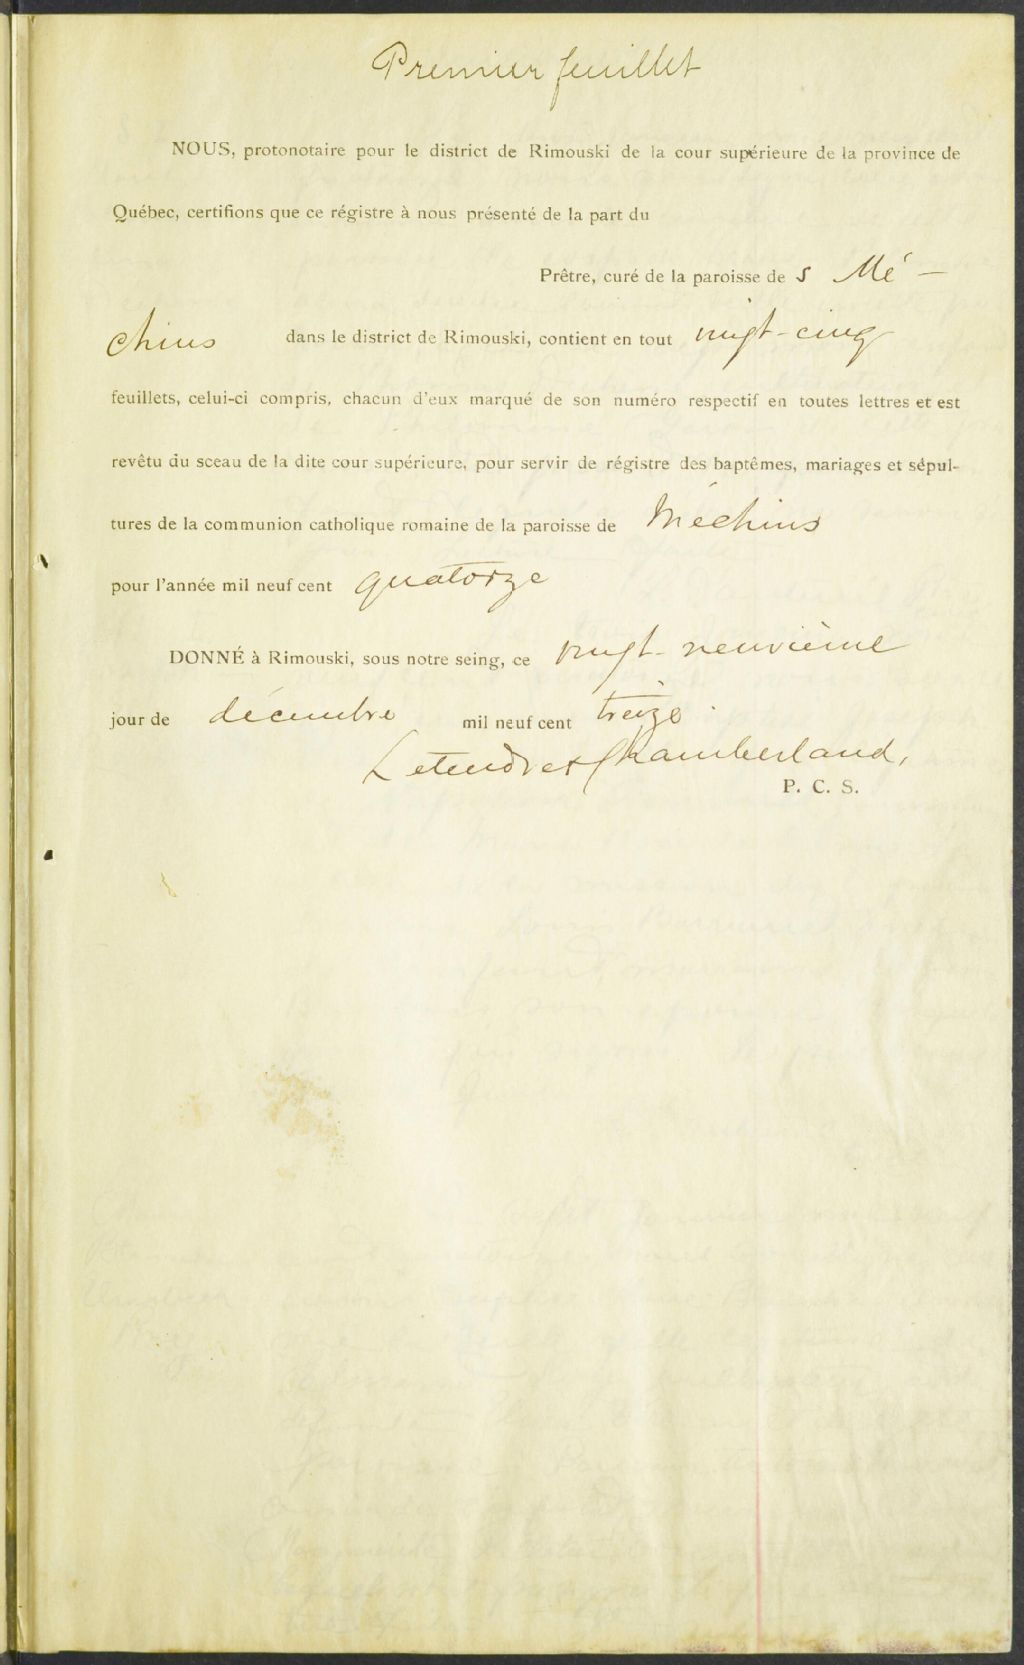 Premier feuillet
NOUS, protonotaire pour le district de Rimouski de la cour supérieure de la province de
Québec, certifions que ce régistre à nous présenté de la part du
Prêtre, curé de la paroisse de s Mé-
chins dans le district de Rimouski, contient en tout vingt-cinq
feuillets, celui-ci compris, chacun d'eux marqué de son numéro respectif en toutes lettres et est
revêtu du sceau de la dite cour supérieure, pour servir de régistre des baptêmes, mariages et sépul-
tures de la communion catholique romaine de la paroisse de Méchins
pour l'année mil neuf cent quatorze
DONNÉ à Rimouski, sous notre seing, ce vingt-neuvième
jour de décembre mil neuf cent treize.
Letendre & Chamberland,
P. C. S.